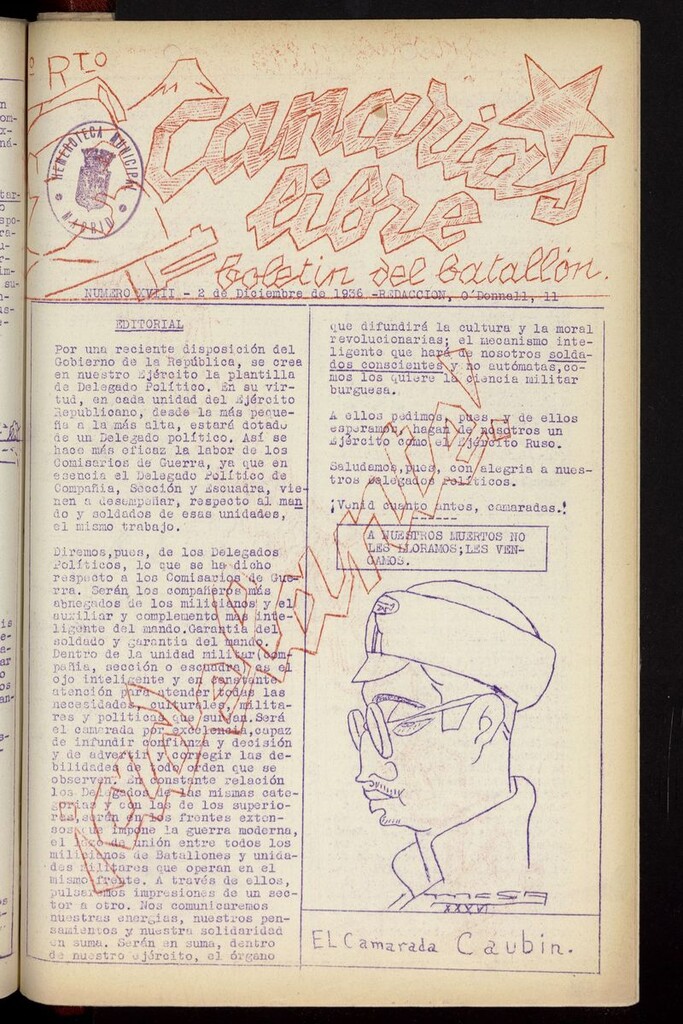 º RTO
Canarias
libre
boletin del batallón.
HEMEROTECA MUNICIPAL
MADRID
NUMERO XVIII - 2 de Diciembre de 1936 -REDACCION, O'Donnell, 11
EDITORIAL
Por una reciente disposición del
Gobierno de la República, se crea
en nuestro Ejército la plantilla
de Delegado Político. En su vir-
tud, en cada unidad del Ejército
Republicano, desde la más peque-
ña a la más alta, estará dotado
de un Delegado político. Así se
hace más eficaz la labor de los
Comisarios de Guerra, ya que en
esencia el Delegado Político de
Compañia, Sección y Escuadra, vie-
nen a desempeñar, respecto al man
do y soldados de esas unidades,
el mismo trabajo.
Diremos,pues, de los Delegados
Políticos, lo que se ha dicho
respecto a los Comisarios de Gue-
rra. Serán los compañeros más
abnegados de los milicianos y el
auxiliar y complemento más inte-
ligente del mando.Garantia del
soldado y garantia del mando.
Dentro de la unidad militar(com-
pañia, sección o escuadra) es el
ojo inteligente y en constante
atención para atender todas las
necesidades, culturales, milita-
res y politicas que surjan.Será
el camarada por excelencia,capaz
de infundir confianza y decisión
y de advertir y corregir las de-
bilidades de todo orden que se
observen. En constante relación
los Delegados de las mismas cate-
gorias y con las de los superio-
res,serán en los frentes exten-
sos que impone la guerra moderna,
el lazo de unión entre todos los
milicianos de Batallones y unida-
des militares que operan en el
mismo frente. A través de ellos,
pulsaremos impresiones de un sec-
tor a otro. Nos comunicaremos
nuestras energias, nuestros pen-
samientos y nuestra solidaridad
en suma. Serán en suma, dentro
de nuestro ejército, el órgano
que difundirá la cultura y la moral
revolucionarias; el mecanismo inte-
ligente que hará de nosotros solda-
dos conscientes y no autómatas,co-
mos los quiere la ciencia militar
burguesa.
A ellos pedimos, pues, y de ellos
esperamos, hagan de nosotros un
Ejército como el Ejército Ruso.
Saludamos,pues, con alegria a nues-
tros Delegados Políticos.
¡Venid cuanto antes, camaradas.!
A NUESTROS MUERTOS NO
LES LLORAMOS;LES VEN-
GAMOS.
mesa
XXXVI
EL Camarada Caubin.